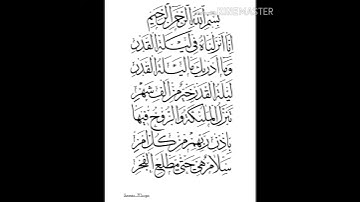 MASTER
بسم الله الرحمن الرحيم
انا انزلناه فى ليلة القدر
وما ادريك ما ليلة القدر
ليلة القدر خير من الف شهر
تنزل الملئكة والروح فيها
باذن ربهم من كل امر
سلام هى حتى مطلع الفجر